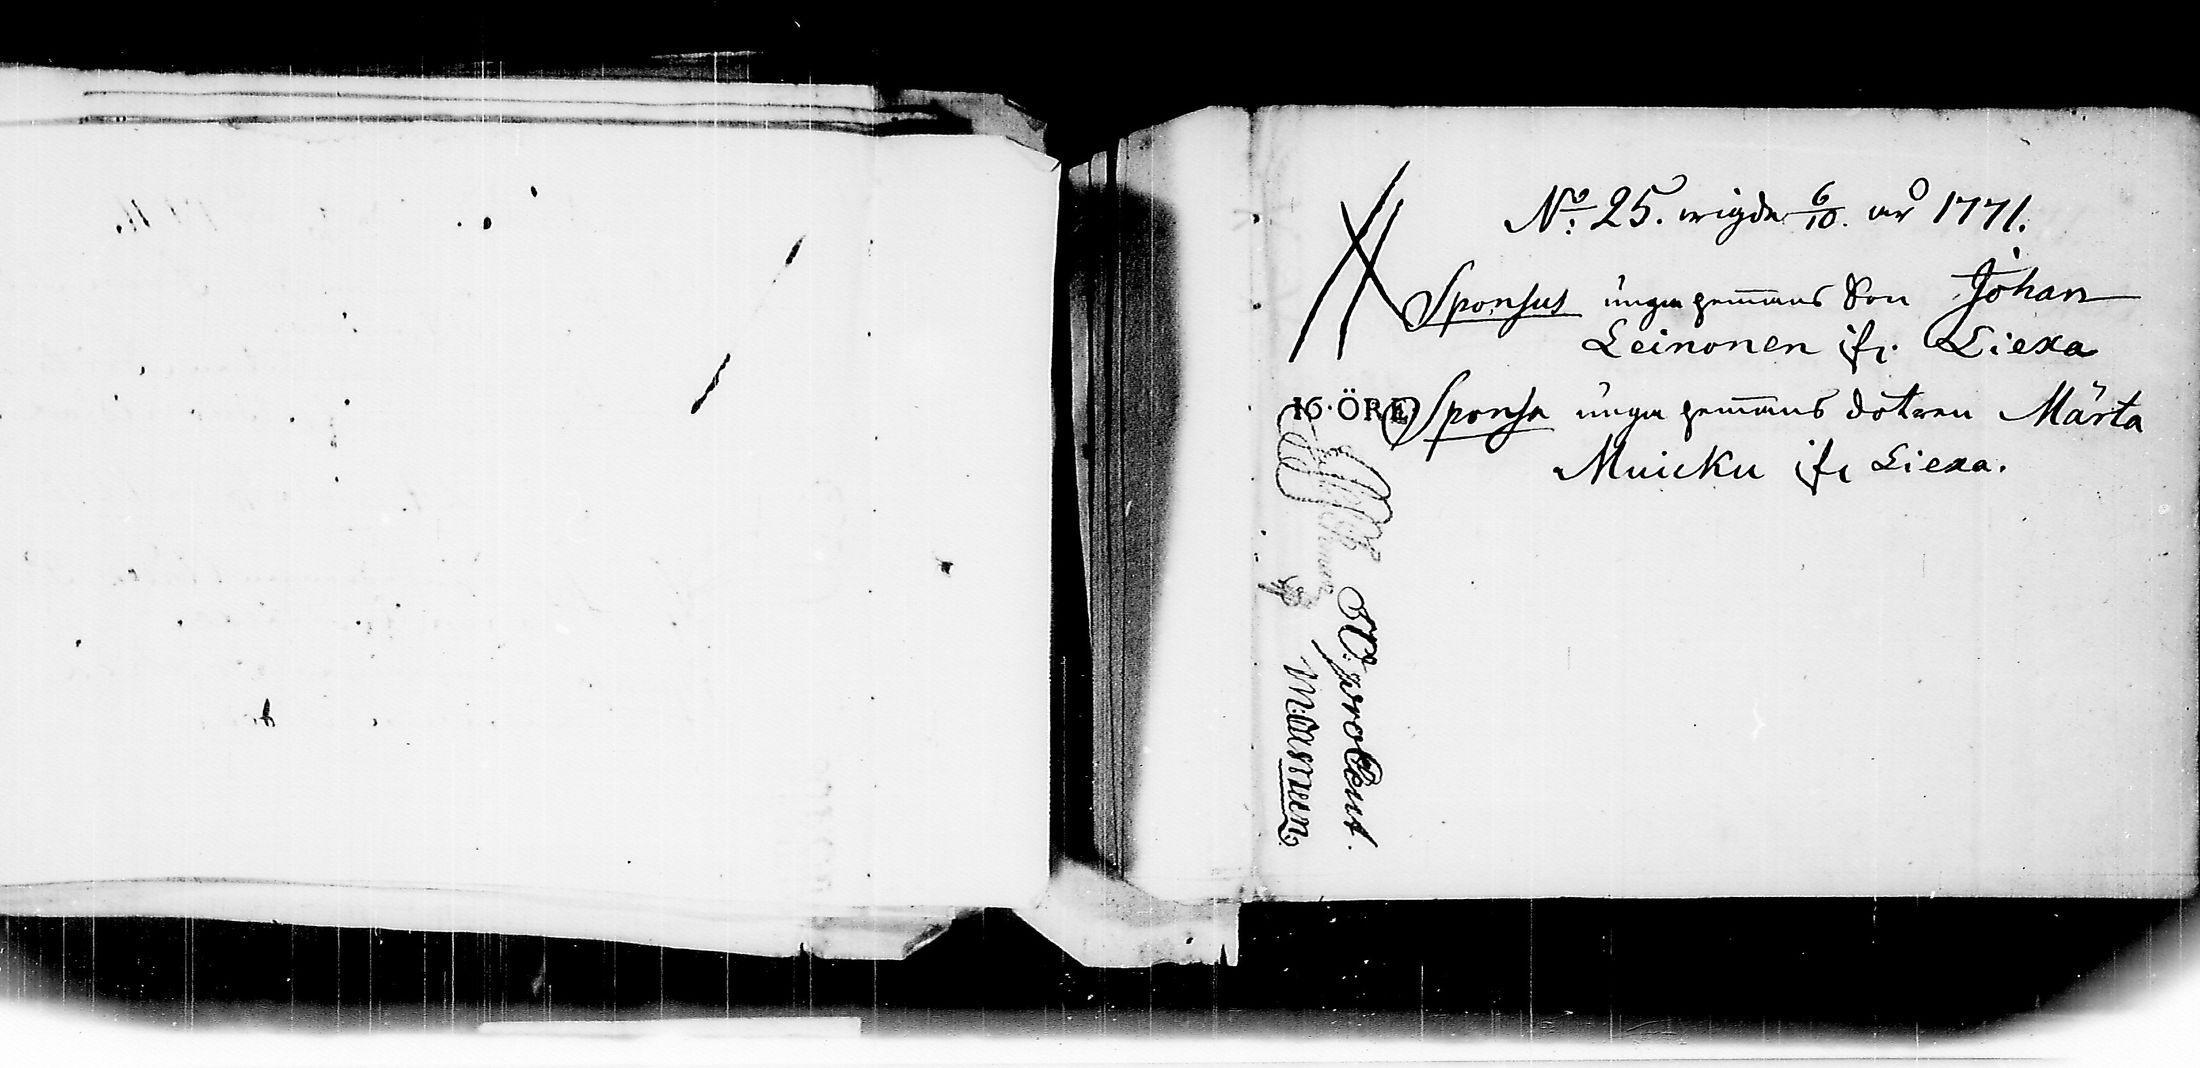 No: 25. wigde 6/10. år 1771.
Sponsus unga gem̅ans Son Johan
Leinonen ifr. Liexa
16·ÖRE
Sponsa unga gem̅ans dotren Märta
Muicku ifr Liexa.